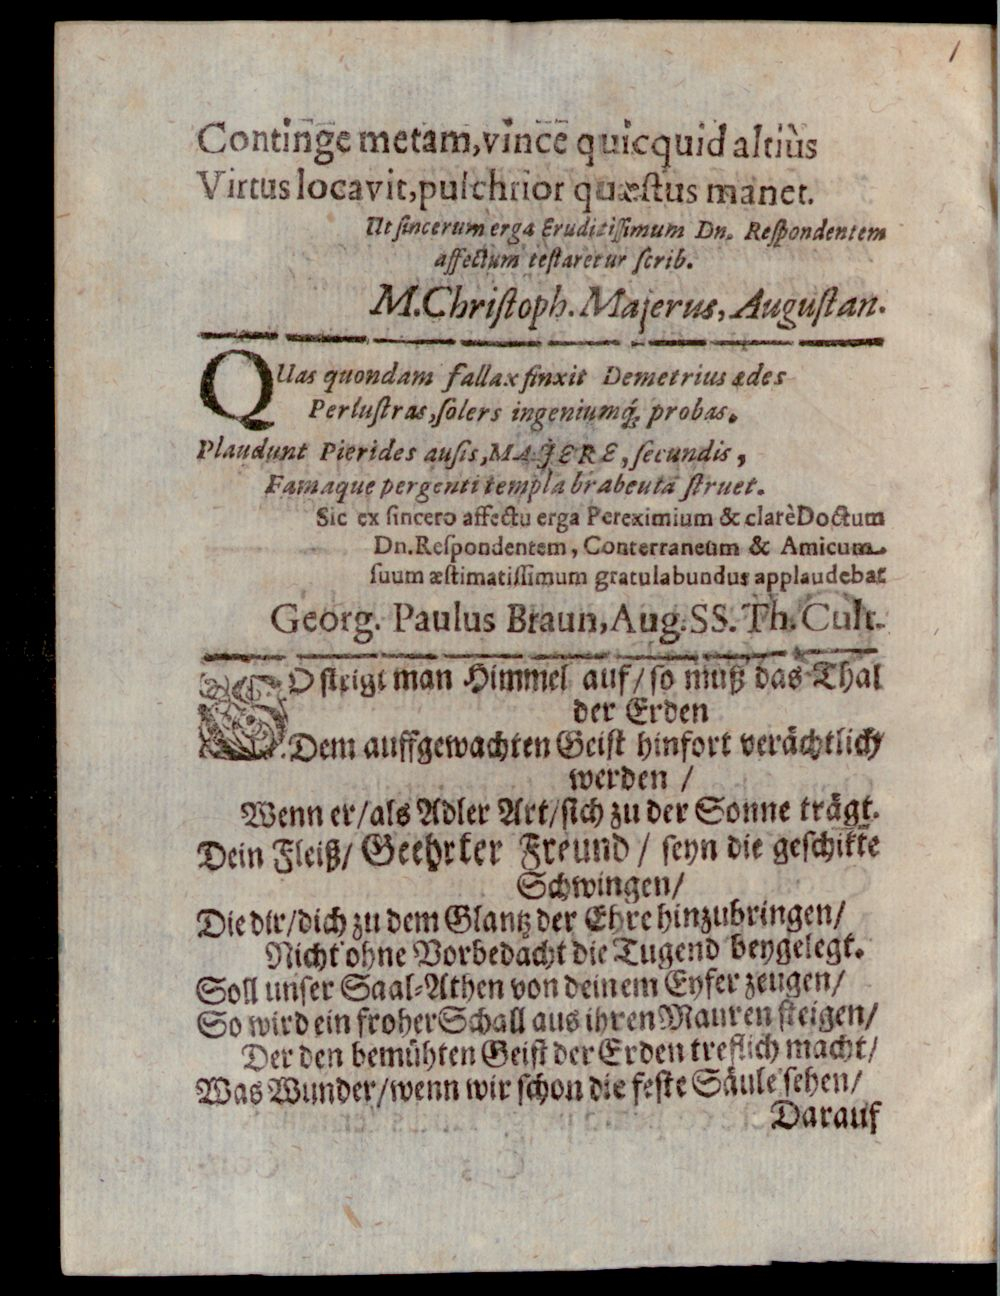 Continge metam, vince quicquid altiùs
Virtus locavit, pulchrior quæstus manet.
Ut sincerum erga Eruditissimum Dn. Respondentem
affectum testaretur scrib.
M. Christoph. Majerus, Augustan.
QUas quondam fallax finxit Demetrius ædes
Perlustras, solers ingeniumq́; probas.
Plaudunt Pierides ausis, MAJERE, secundis,
Famaque pergenti templa brabeuta struet.
Sic ex sincero affectu erga Pereximium & clarè Doctum
Dn. Respondentem, Conterraneum & Amicum
suum æstimatissimum gratulabundus applaudebat
Georg. Paulus Braun, Aug. SS. Th. Cult.
SO steigt man Himmel auf/ so muß das Thal
der Erden
Dem auffgewachten Geist hinfort verächtlich
werden /
Wenn er/ als Adler Art/ sich zu der Sonne trägt.
Dein Fleiß/ Geehrter Freund / seyn die geschikte
Schwingen/
Die dir/ dich zu dem Glantz der Ehre hinzubringen/
Nicht ohne Vorbedacht die Tugend beygelegt.
Soll unser Saal-Athen von deinem Eyfer zeugen/
So wird ein froher Schall aus ihren Mauren steigen/
Der den bemühten Geist der Erden treflich macht/
Was Wunder/ wenn wir schon die feste Säule sehen/
Darauf